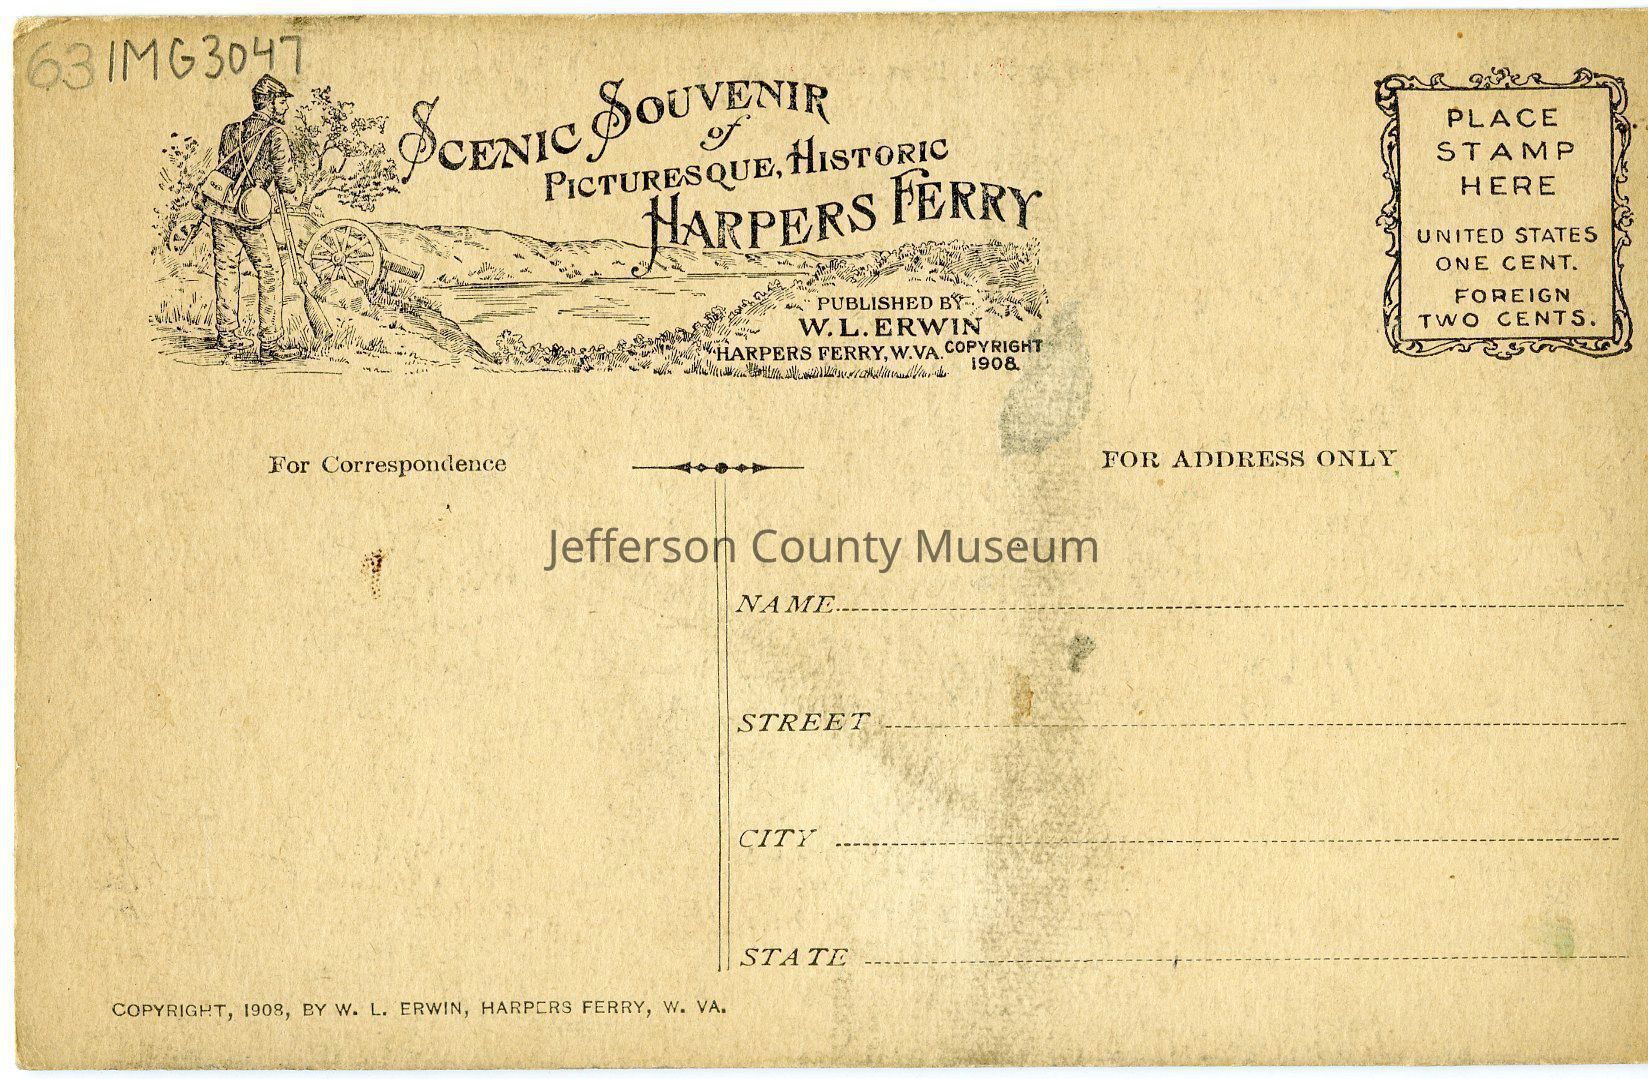 63 IMG3047
SCENIC SOUVENIR
of
PICTURESQUE, HISTORIC
HARPERS FERRY
PUBLISHED BY
W. L. ERWIN
HARPERS FERRY, W. VA. COPYRIGHT
1908.
PLACE
STAMP
HERE
UNITED STATES
ONE CENT.
FOREIGN
TWO CENTS.
For Correspondence
FOR ADDRESS ONLY
Jefferson County Museum
NAME
STREET
CITY
STATE
COPYRIGHT, 1908, BY W. L. ERWIN, HARPERS FERRY, W. VA.